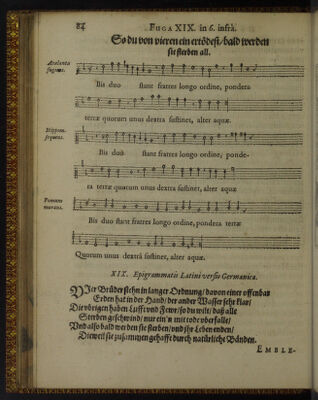 84 FUGA XIX. in 6. infrà.
So du von vieren ein ertödest/bald werden
sie sterben all.
Atalanta
fugiens.
Bis duo stant fratres longo ordine, pondera
terræ quorum unus dextra sustinet, alter aquæ.
Hippom.
sequens.
Bis duo stant fratres longo ordine, ponde-
ra terræ quorum unus dextra sustinet, alter aquæ
Pomum
morans.
Bis duo stant fratres longo ordine, pondera terræ
Quorum unus dextrâ sustinet, alter aquæ.
XIX. Epigrammatis Latini versio Germanica.
VIer Brüder stehn in langer Ordnung/davon einer offenbar
Erden hat in der Hand/der ander Wasser sehr klar/
Die übrigen haben Lufft und Fewr/so du wilt/daß alle
Sterben geschwind/nur ein'n mit tode überfalle/
Und also bald werden sie sterben/und ihr Leben enden/
Dieweil sie zusammen gehafft durch natürliche Bänden.
EMBLE-